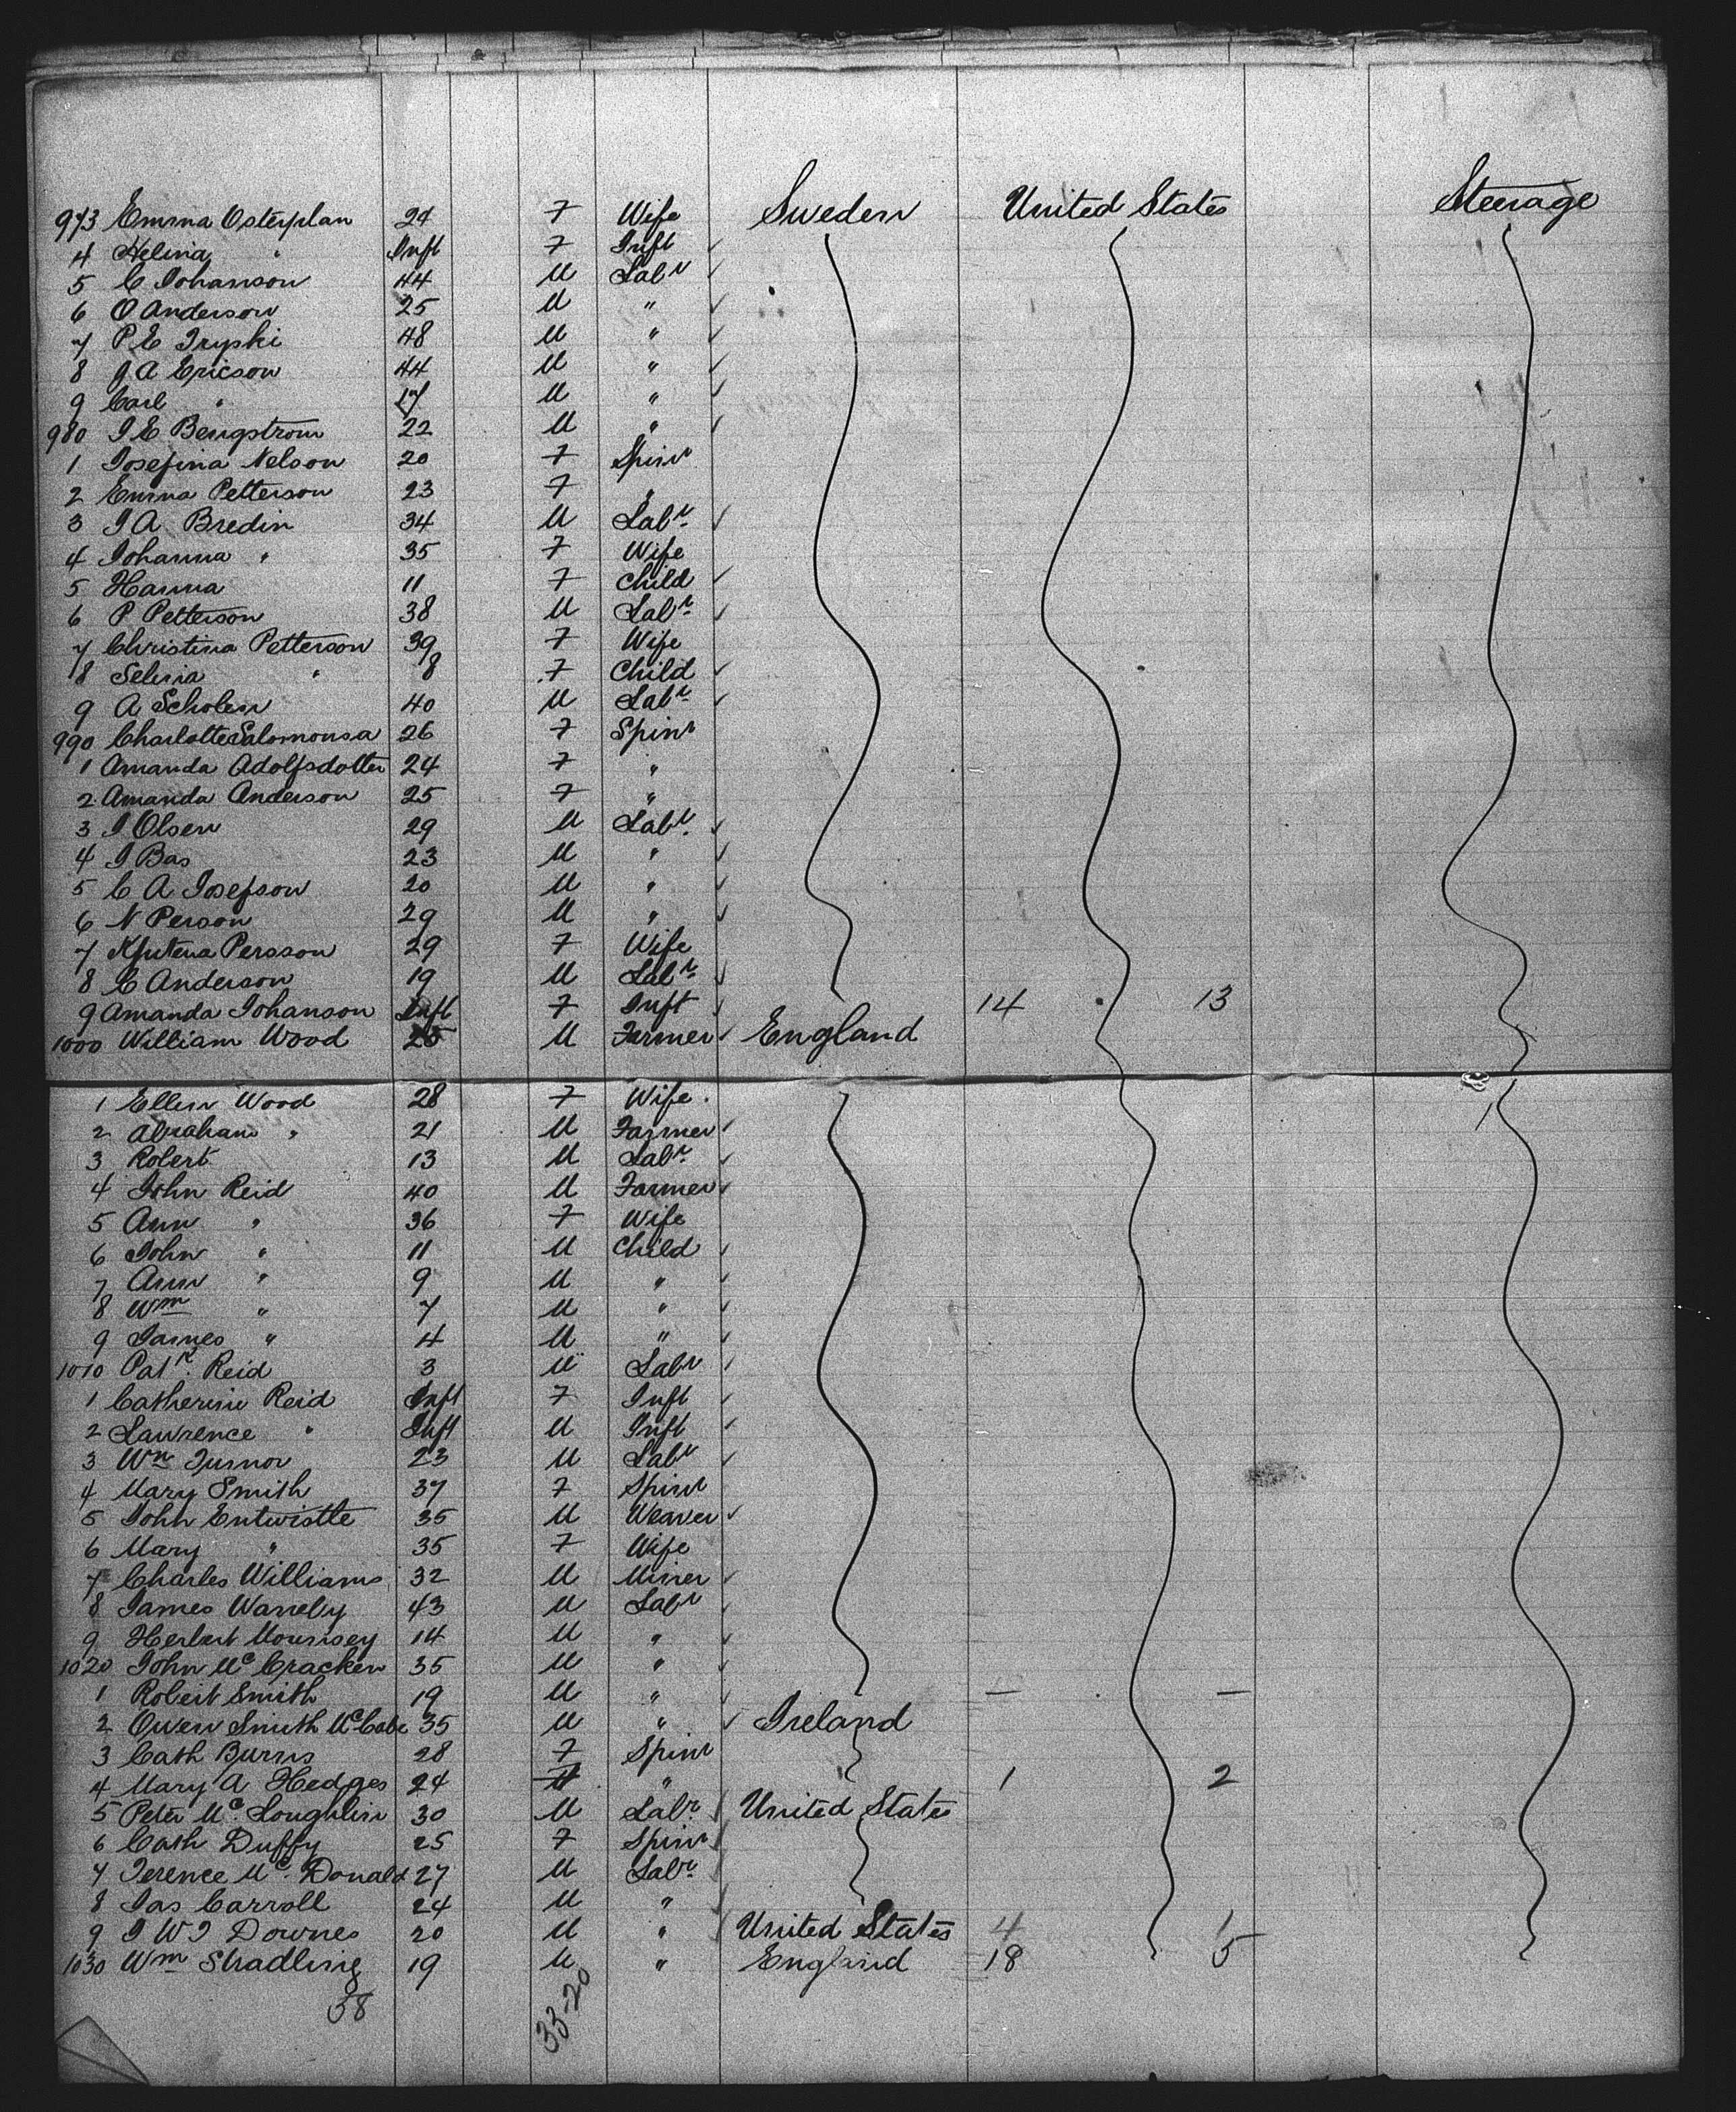 973 Emma Osterplan 24 F Wife Sweden United States Steerage
4 Helina " Inft F Inft
5 C Johanson 44 M Labr
6 O Anderson 25 M "
7 P E Tryski 48 M "
8 J A Ericson 44 M "
9 Carl " 17 M "
980 J E Bengstrom 22 M "
1 Josefina Nelson 20 F Spinr
2 Emma Petterson 23 F "
3 J A Bredin 34 M Labr
4 Johanna " 35 F Wife
5 Hanna 11 F Child
6 P Petterson 38 M Labr
7 Christina Petterson 39 F Wife
8 Selina " 8 F Child
9 A Scholen 40 M Labr
990 Charlotte Salomonsa 26 F Spinr
1 Amanda Adolfsdotter 24 F "
2 Amanda Anderson 25 F "
3 J Olsen 29 M Labr
4 J Bas 23 M "
5 C A Josefson 20 M "
6 N Person 29 M "
7 Persson 29 F Wife
8 C Anderson 19 M Labr
9 Amanda Johanson Inft F Inft 14 13
1000 William Wood 25 M Farmer England
1 Ellen Wood 28 F Wife
2 Abraham " 21 M Farmer
3 Robert 13 M Labr
4 John Reid 40 M Farmer
5 Ann " 36 F Wife
6 John " 11 M Child
7 Ann " 9 M "
8 Wm " 7 M "
9 James " 4 M "
1010 Patk Reid 3 M Labr
1 Catherine Reid Inft F Inft
2 Lawrence " Inft M Inft
3 Wm Turnor 23 M Labr
4 Mary Smith 37 F Spinr
5 John Entwistle 35 M Weaver
6 Mary " 35 F Wife
7 Charles Williams 32 M Miner
8 James Warreby 43 M Labr
9 Herbert Mourisey 14 M "
1020 John McCracken 35 M "
1 Robert Smith 19 M " — —
2 Owen Smith McCabe 35 M " Ireland
3 Cath Burns 28 F Spinr
4 Mary A Hedges 24 " 1 2
5 Peter McLoughlin 30 M Labr United States
6 Cath Duffy 25 F Spinr
7 Terence McDonald 27 M Labr
8 Jas Carroll 24 M "
9 J W J Downes 20 M " United States 4 1
1030 Wm Stradling 19 M " England 18 5
58 33-20